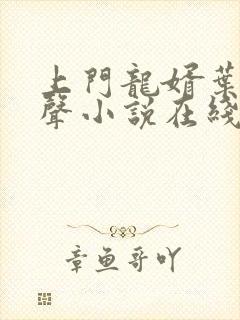 上門龍婿葉
聲小說在綫
章魚哥吖